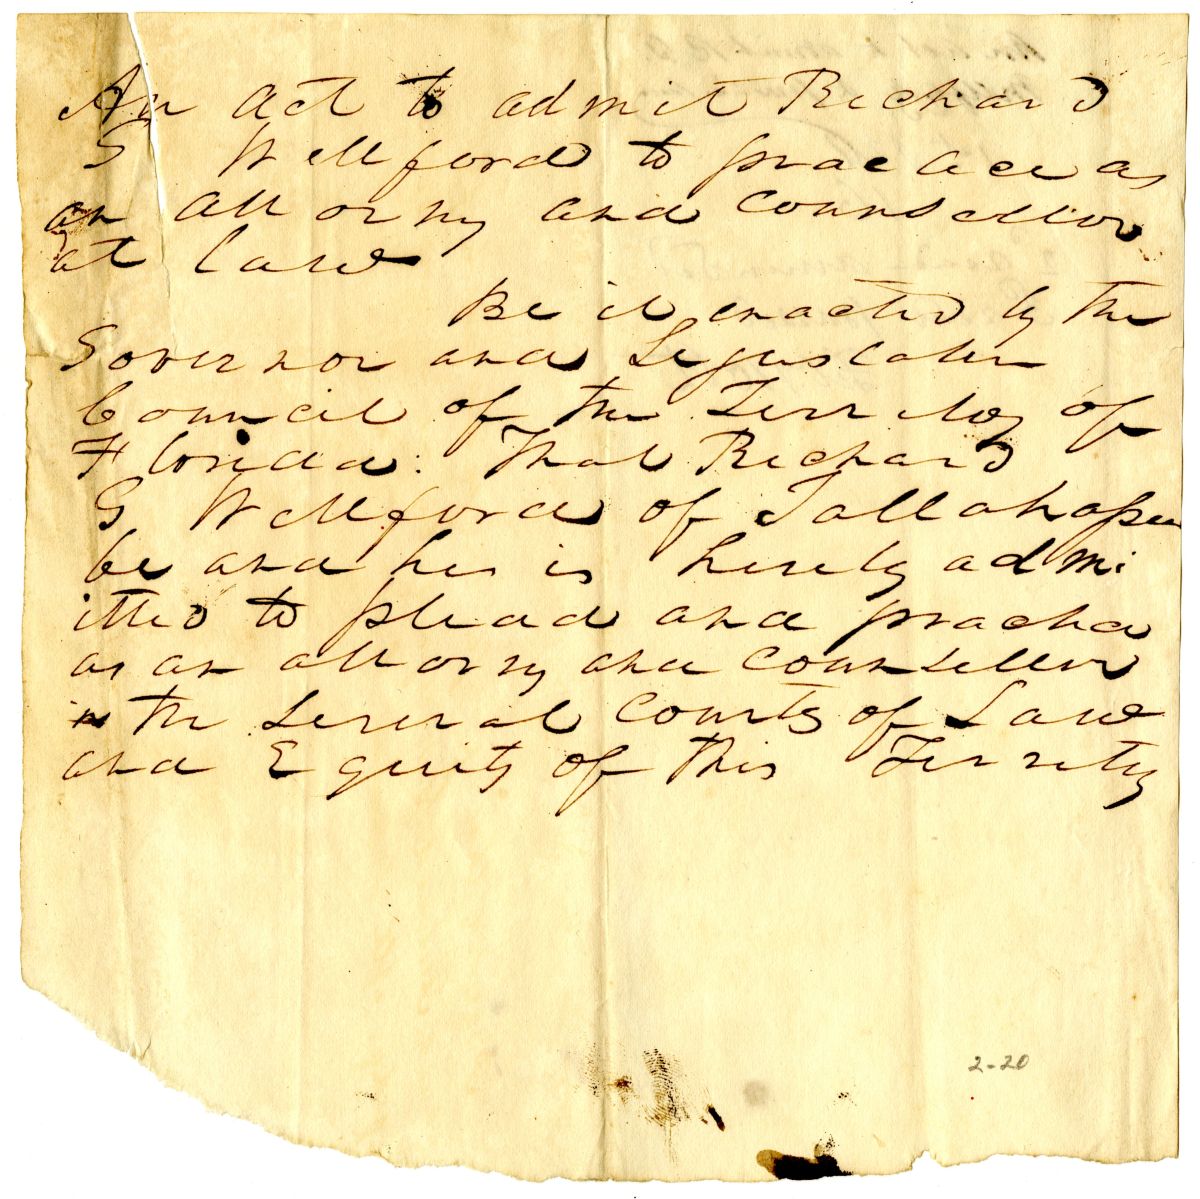 An Act to admit Richard
S Wellford to practice as
an attorny and Counsellor
at Law
Be it enacted by the
Governor and Legislative
Council of the Territory of
Florida: That Richard
S Wellford of Tallahassee
be and he is hereby admi
itted to plead and practice
as an attorny and Counsellor
in the several Courts of Law
and Equity of this Territy
2-20